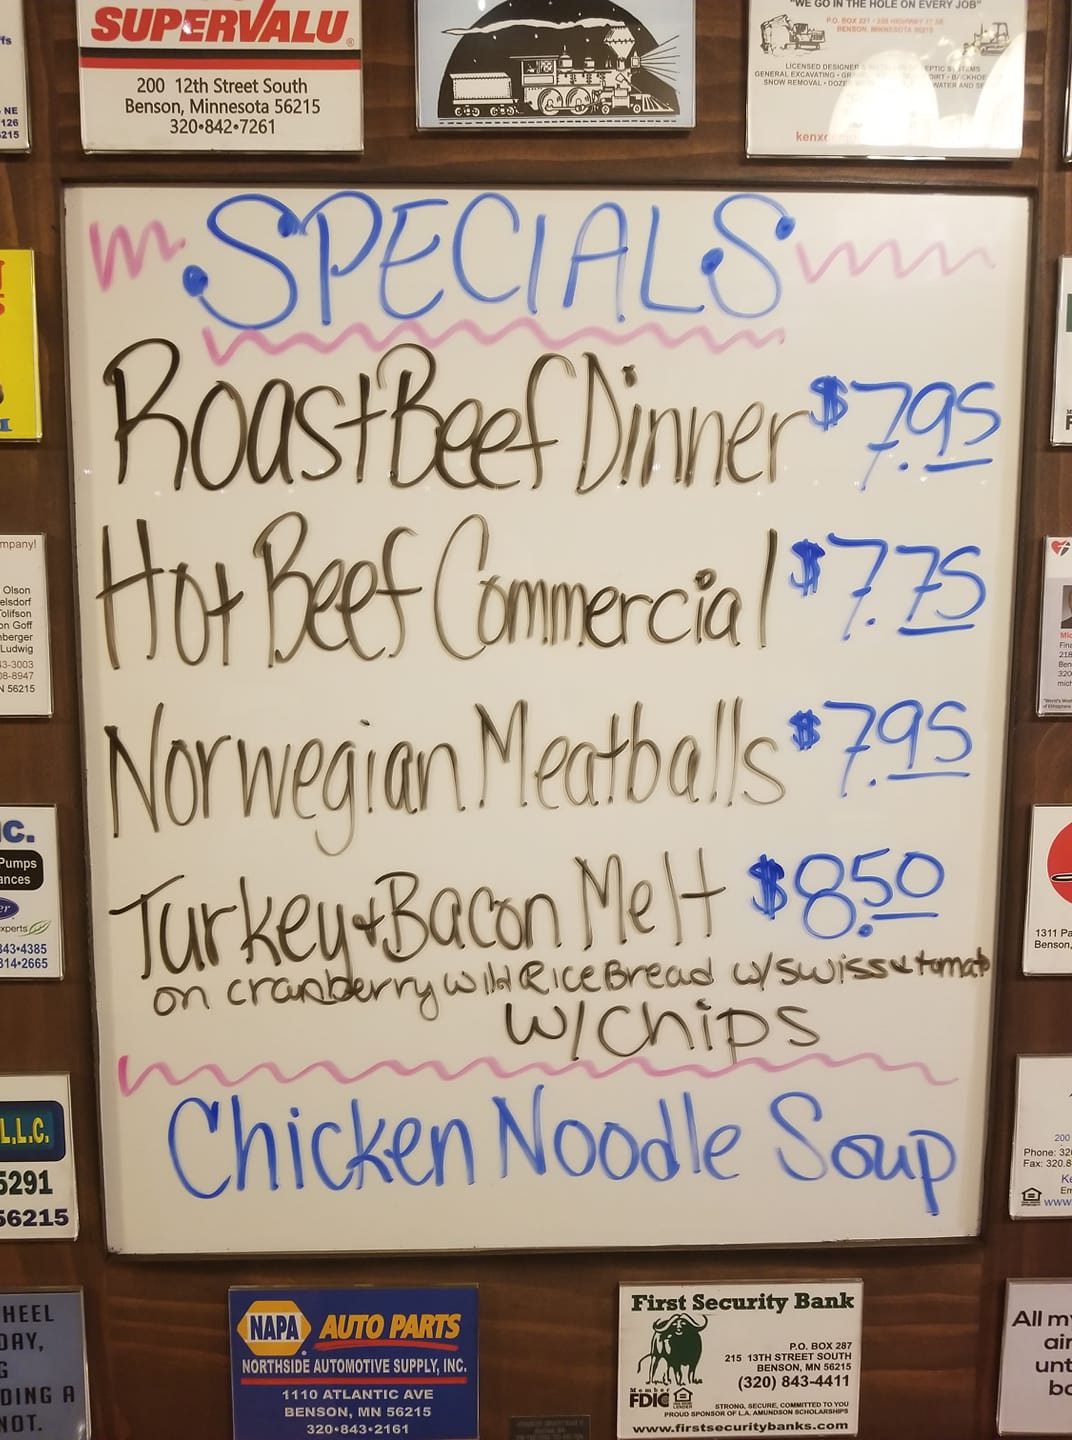 SUPERVALU
200 12th Street South
Benson, Minnesota 56215
320•842•7261
"WE GO IN THE HOLE ON EVERY JOB"
P.O. BOX 221
BENSON, MINNESOTA 56215
LICENSED DESIGNER
GENERAL EXCAVATING
SNOW REMOVAL
NE
126
215
SPECIALS
Roast Beef Dinner $7.95
Hot Beef Commercial $7.75
Norwegian Meatballs $7.95
Turkey & Bacon Melt $8.50
on cranberry Wild Rice Bread w/ swiss & tomato
w/ Chips
Chicken Noodle Soup
mpany!
Olson
elsdorf
Tolifson
on Goff
nberger
Ludwig
43-3003
08-8947
N 56215
C.
Pumps
ances
xperts
343•4385
314•2665
L.L.C.
5291
56215
1311 Pa
Benson,
200
Phone: 320
Fax: 320.8
www.
HEEL
DAY,
G
DING A
NOT.
NAPA AUTO PARTS
NORTHSIDE AUTOMOTIVE SUPPLY, INC.
1110 ATLANTIC AVE
BENSON, MN 56215
320•843•2161
First Security Bank
P.O. BOX 287
215 13TH STREET SOUTH
BENSON, MN 56215
(320) 843-4411
Member
FDIC
STRONG, SECURE, COMMITTED TO YOU
PROUD SPONSOR OF L.A. AMUNDSON SCHOLARSHIPS
www.firstsecuritybanks.com
All my
air
unt
bo